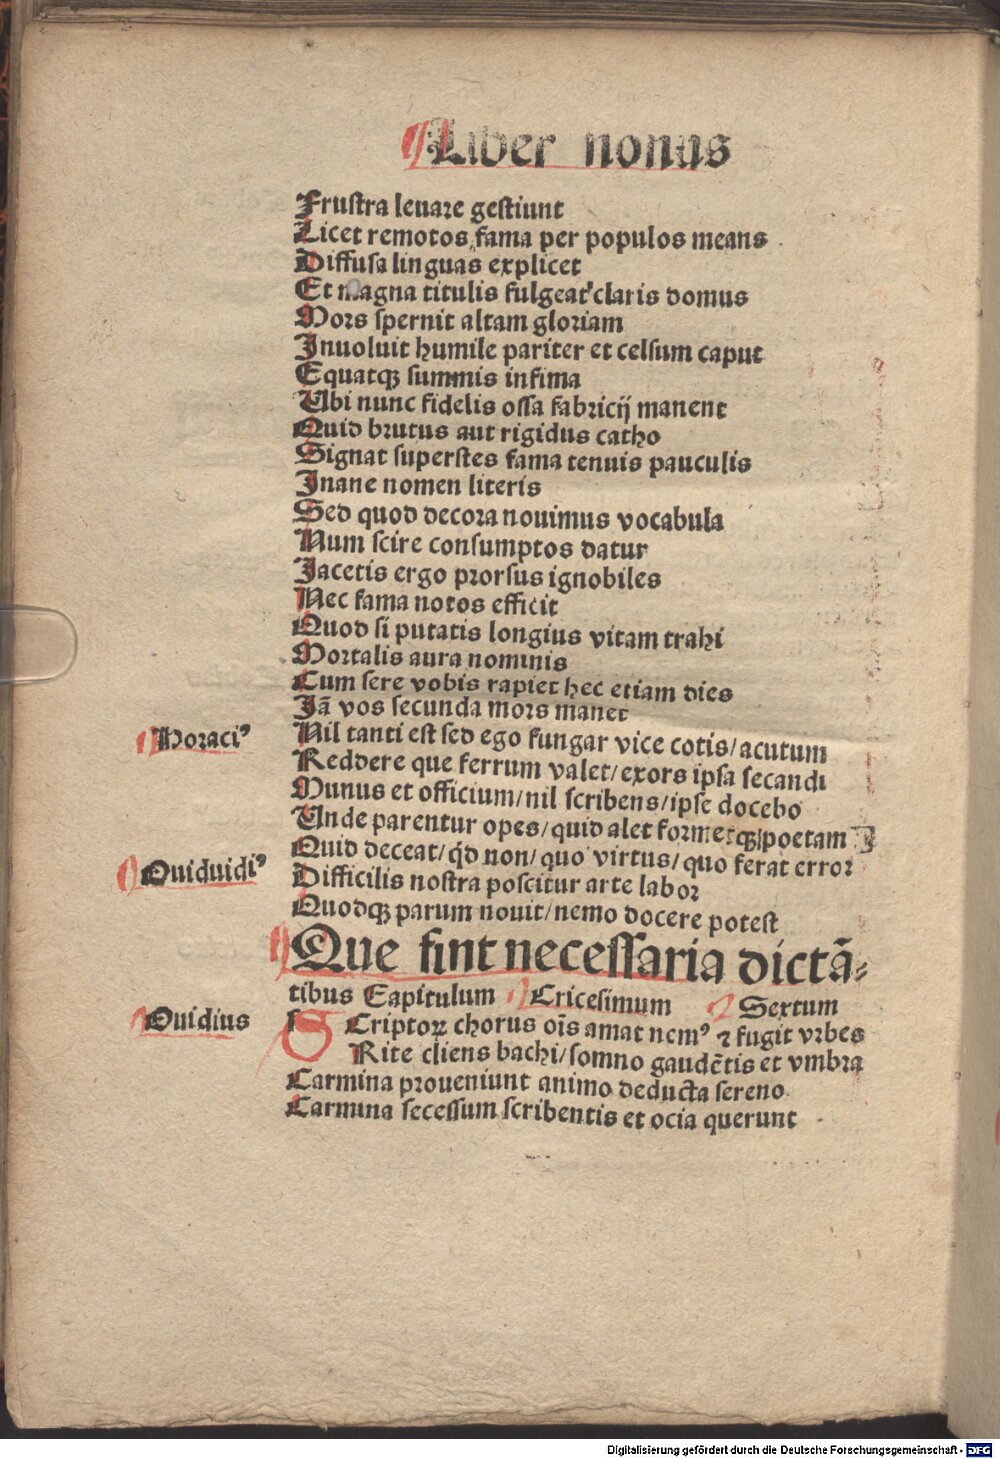 Liber nonus
Frustra leuare gestiunt
Licet remotos fama per populos means
Diffusa linguas explicet
Et magna titulis fulgeat claris domus
Mors spernit altam gloriam
Inuoluit humile pariter et celsum caput
Equatqꝫ summis infima
Ubi nunc fidelis ossa fabricij manent
Quid brutus aut rigidus catho
Signat superstes fama tenuis pauculis
Inane nomen literis
Sed quod decora nouimus vocabula
Num scire consumptos datur
Jacetis ergo prorsus ignobiles
Nec fama notos efficit
Quod si putatis longius vitam trahi
Mortalis aura nominis
Cum sere vobis rapiet hec etiam dies
Jã vos secunda mors manet
Horaciꝰ
Nil tanti est sed ego fungar vice cotis/acutum
Reddere que ferrum valet/exors ipsa secandi
Munus et officium/nil scribens/ipse docebo
Unde parentur opes/quid alet formetqꝫ/poetam
Quid deceat/qd non/quo virtus/quo ferat error
Ouiduidiꝰ
Difficilis nostra poscitur arte labor
Quodqꝫ parum nouit/nemo docere potest
Que sint necessaria dictã-
tibus Capitulum Tricesimum Sextum
Ouidius
SCriptoꝝ chorus oĩs amat nemꝰ ⁊ fugit vrbes
Rite cliens bachi/somno gaudẽtis et vmbra
Carmina proueniunt animo deducta sereno
Carmina secessum scribentis et ocia querunt
Digitalisierung gefördert durch die Deutsche Forschungsgemeinschaft - DFG